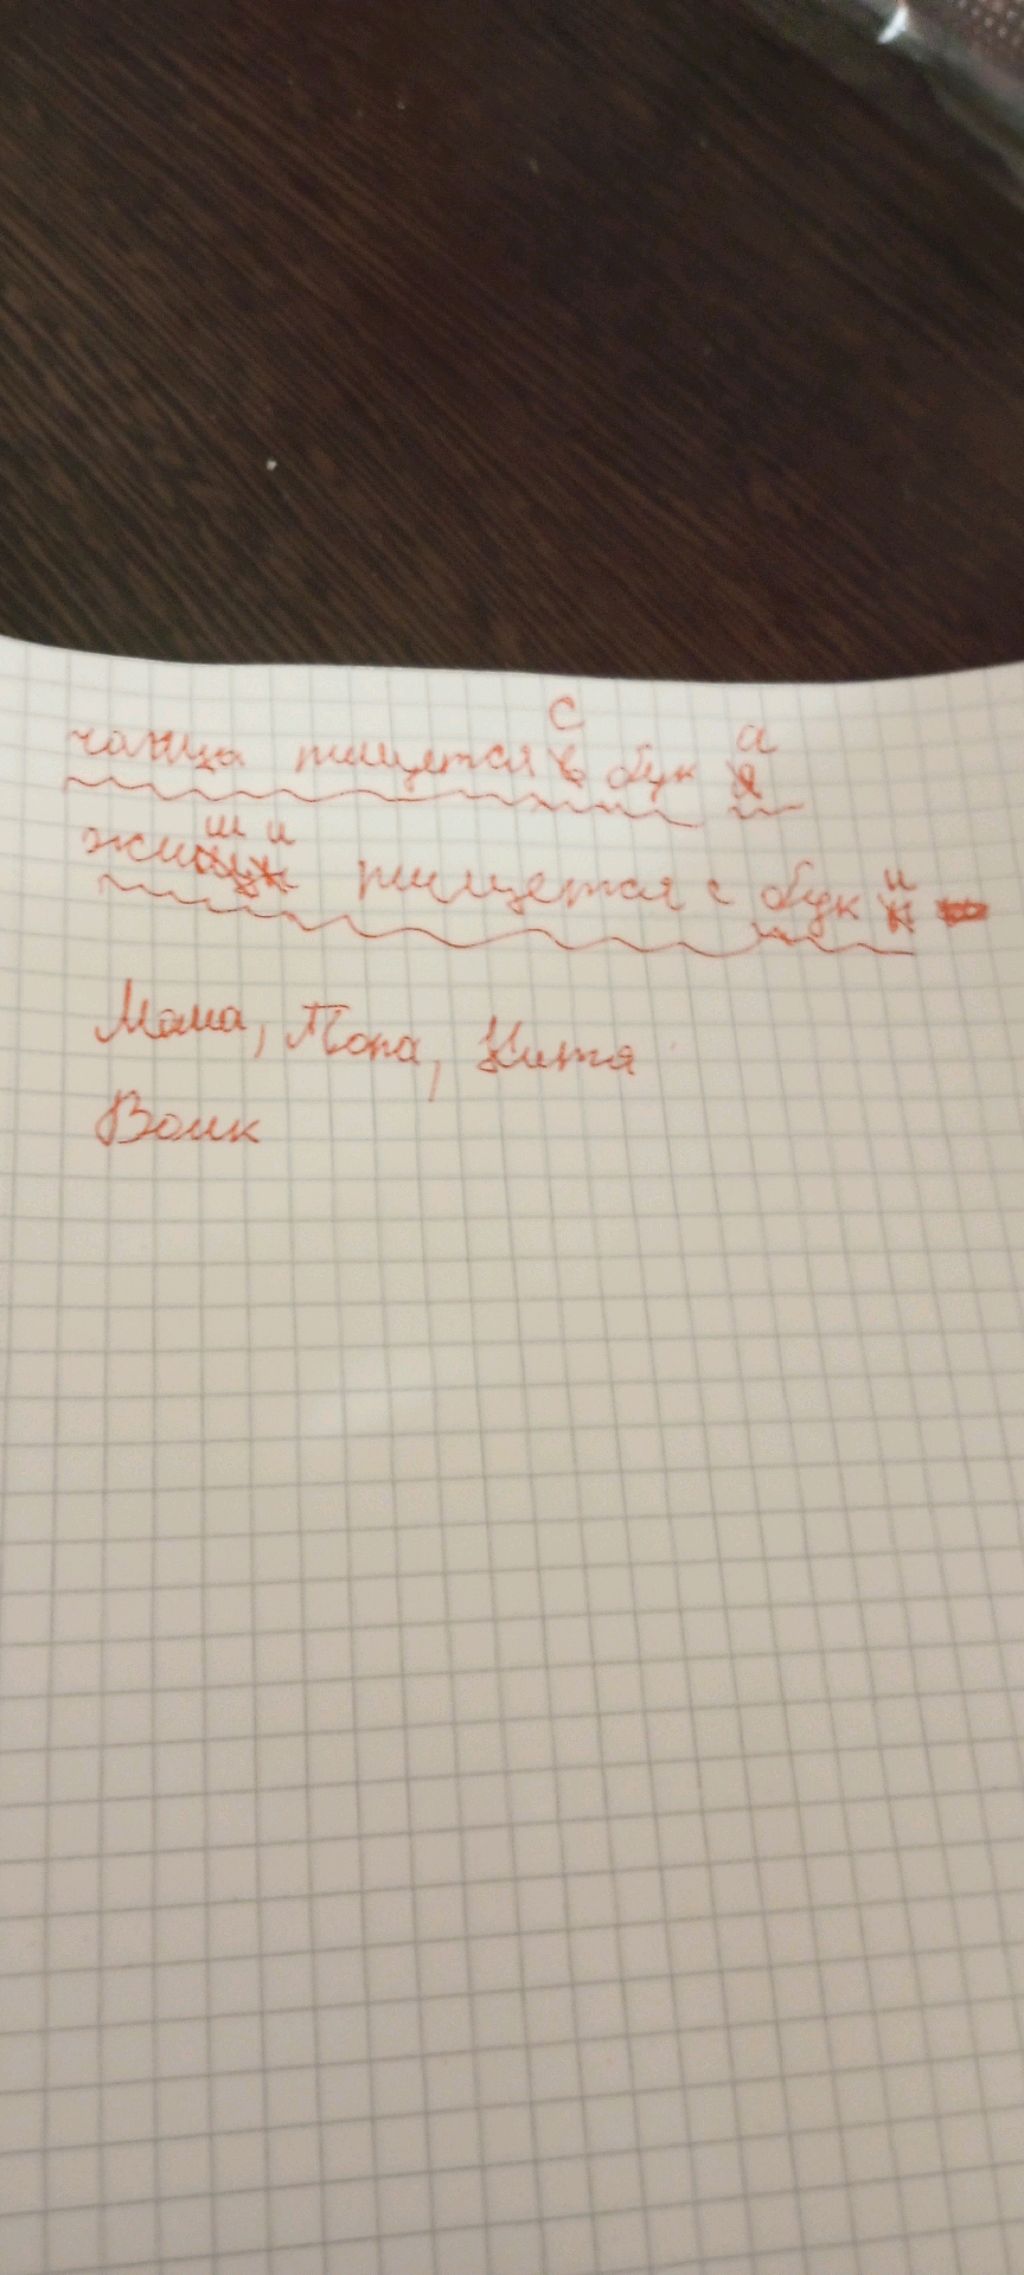 чаща пищется с бук а
жиши пищется с бук и
Мама, Папа, Китя
Волк